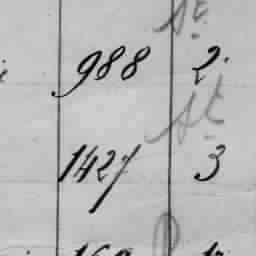 St
988 2.
St
1427 3